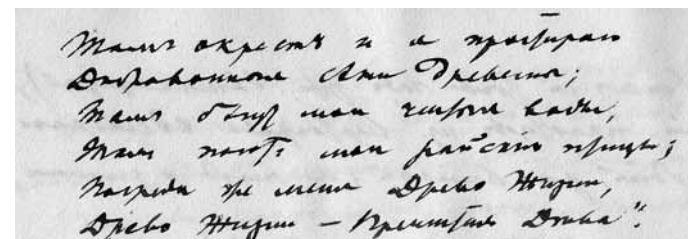 Тамъ окрестъ и я простираю
сѣни древесны;
Тамъ мои воды,
Тамъ поютъ мои райскія птицы;
Посреди же меня Древо Жизни,
Древо Жизни – Пречистая Дѣва".